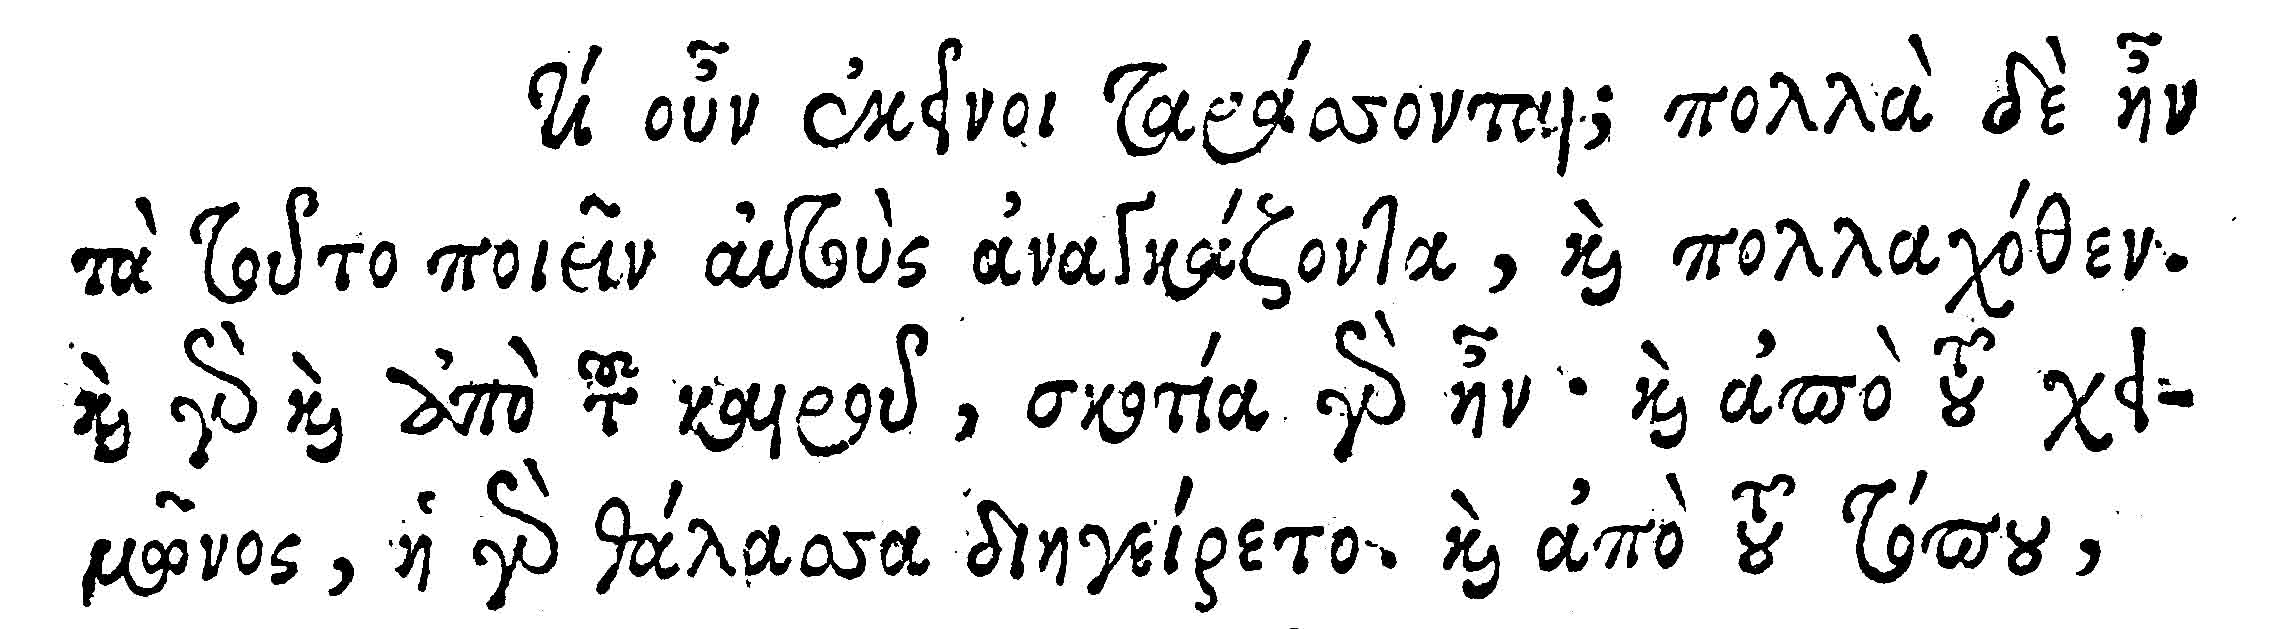 τί οὖν ἐκεῖνοι ταράσσονται; πολλὰ δὲ ἦν
τὰ τοῦτο ποιεῖν αὐτοὺς ἀναγκάζοντα, καὶ πολλαχόθεν.
καὶ γὰρ καὶ ἀπὸ τοῦ καιροῦ, σκοτία γὰρ ἦν· καὶ ἀπὸ τοῦ χει-
μῶνος, ἡ γὰρ θάλασσα διηγείρετο. καὶ ἀπὸ τοῦ τόπου,